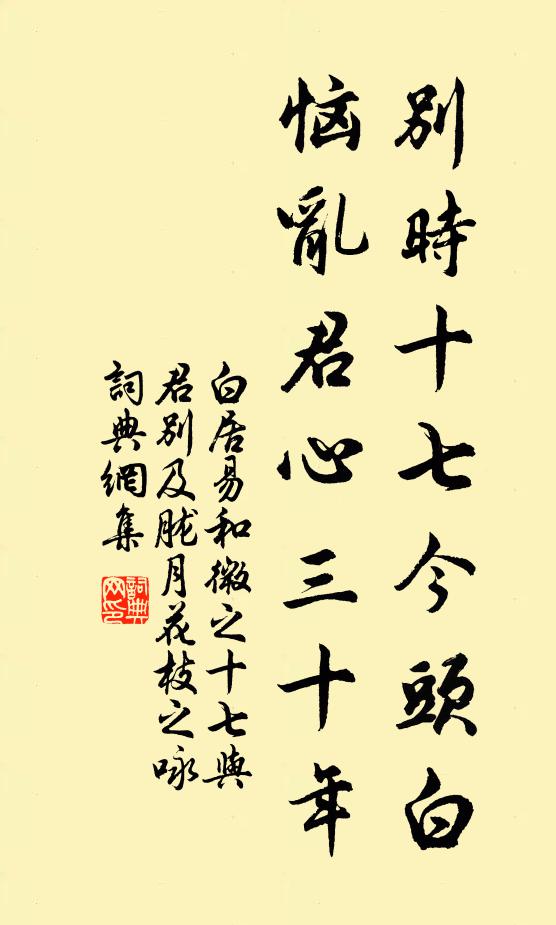 別時十七今頭白
惱亂君心三十年
白居易和微之十七與
君別及朧月花枝之咏
詞典網集
詞典
网印